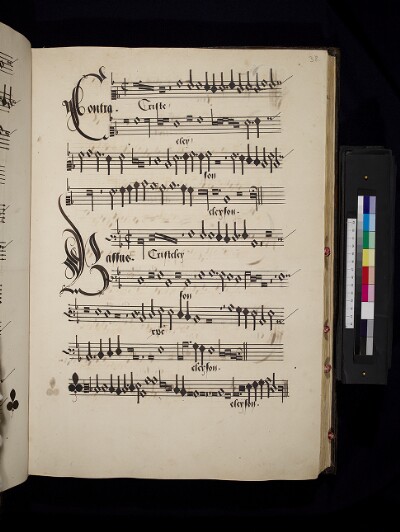 Contra. Triste
eley
son
eleyson.
Bassus. Tristeley
son
xpe
eleyson.
eleyson.